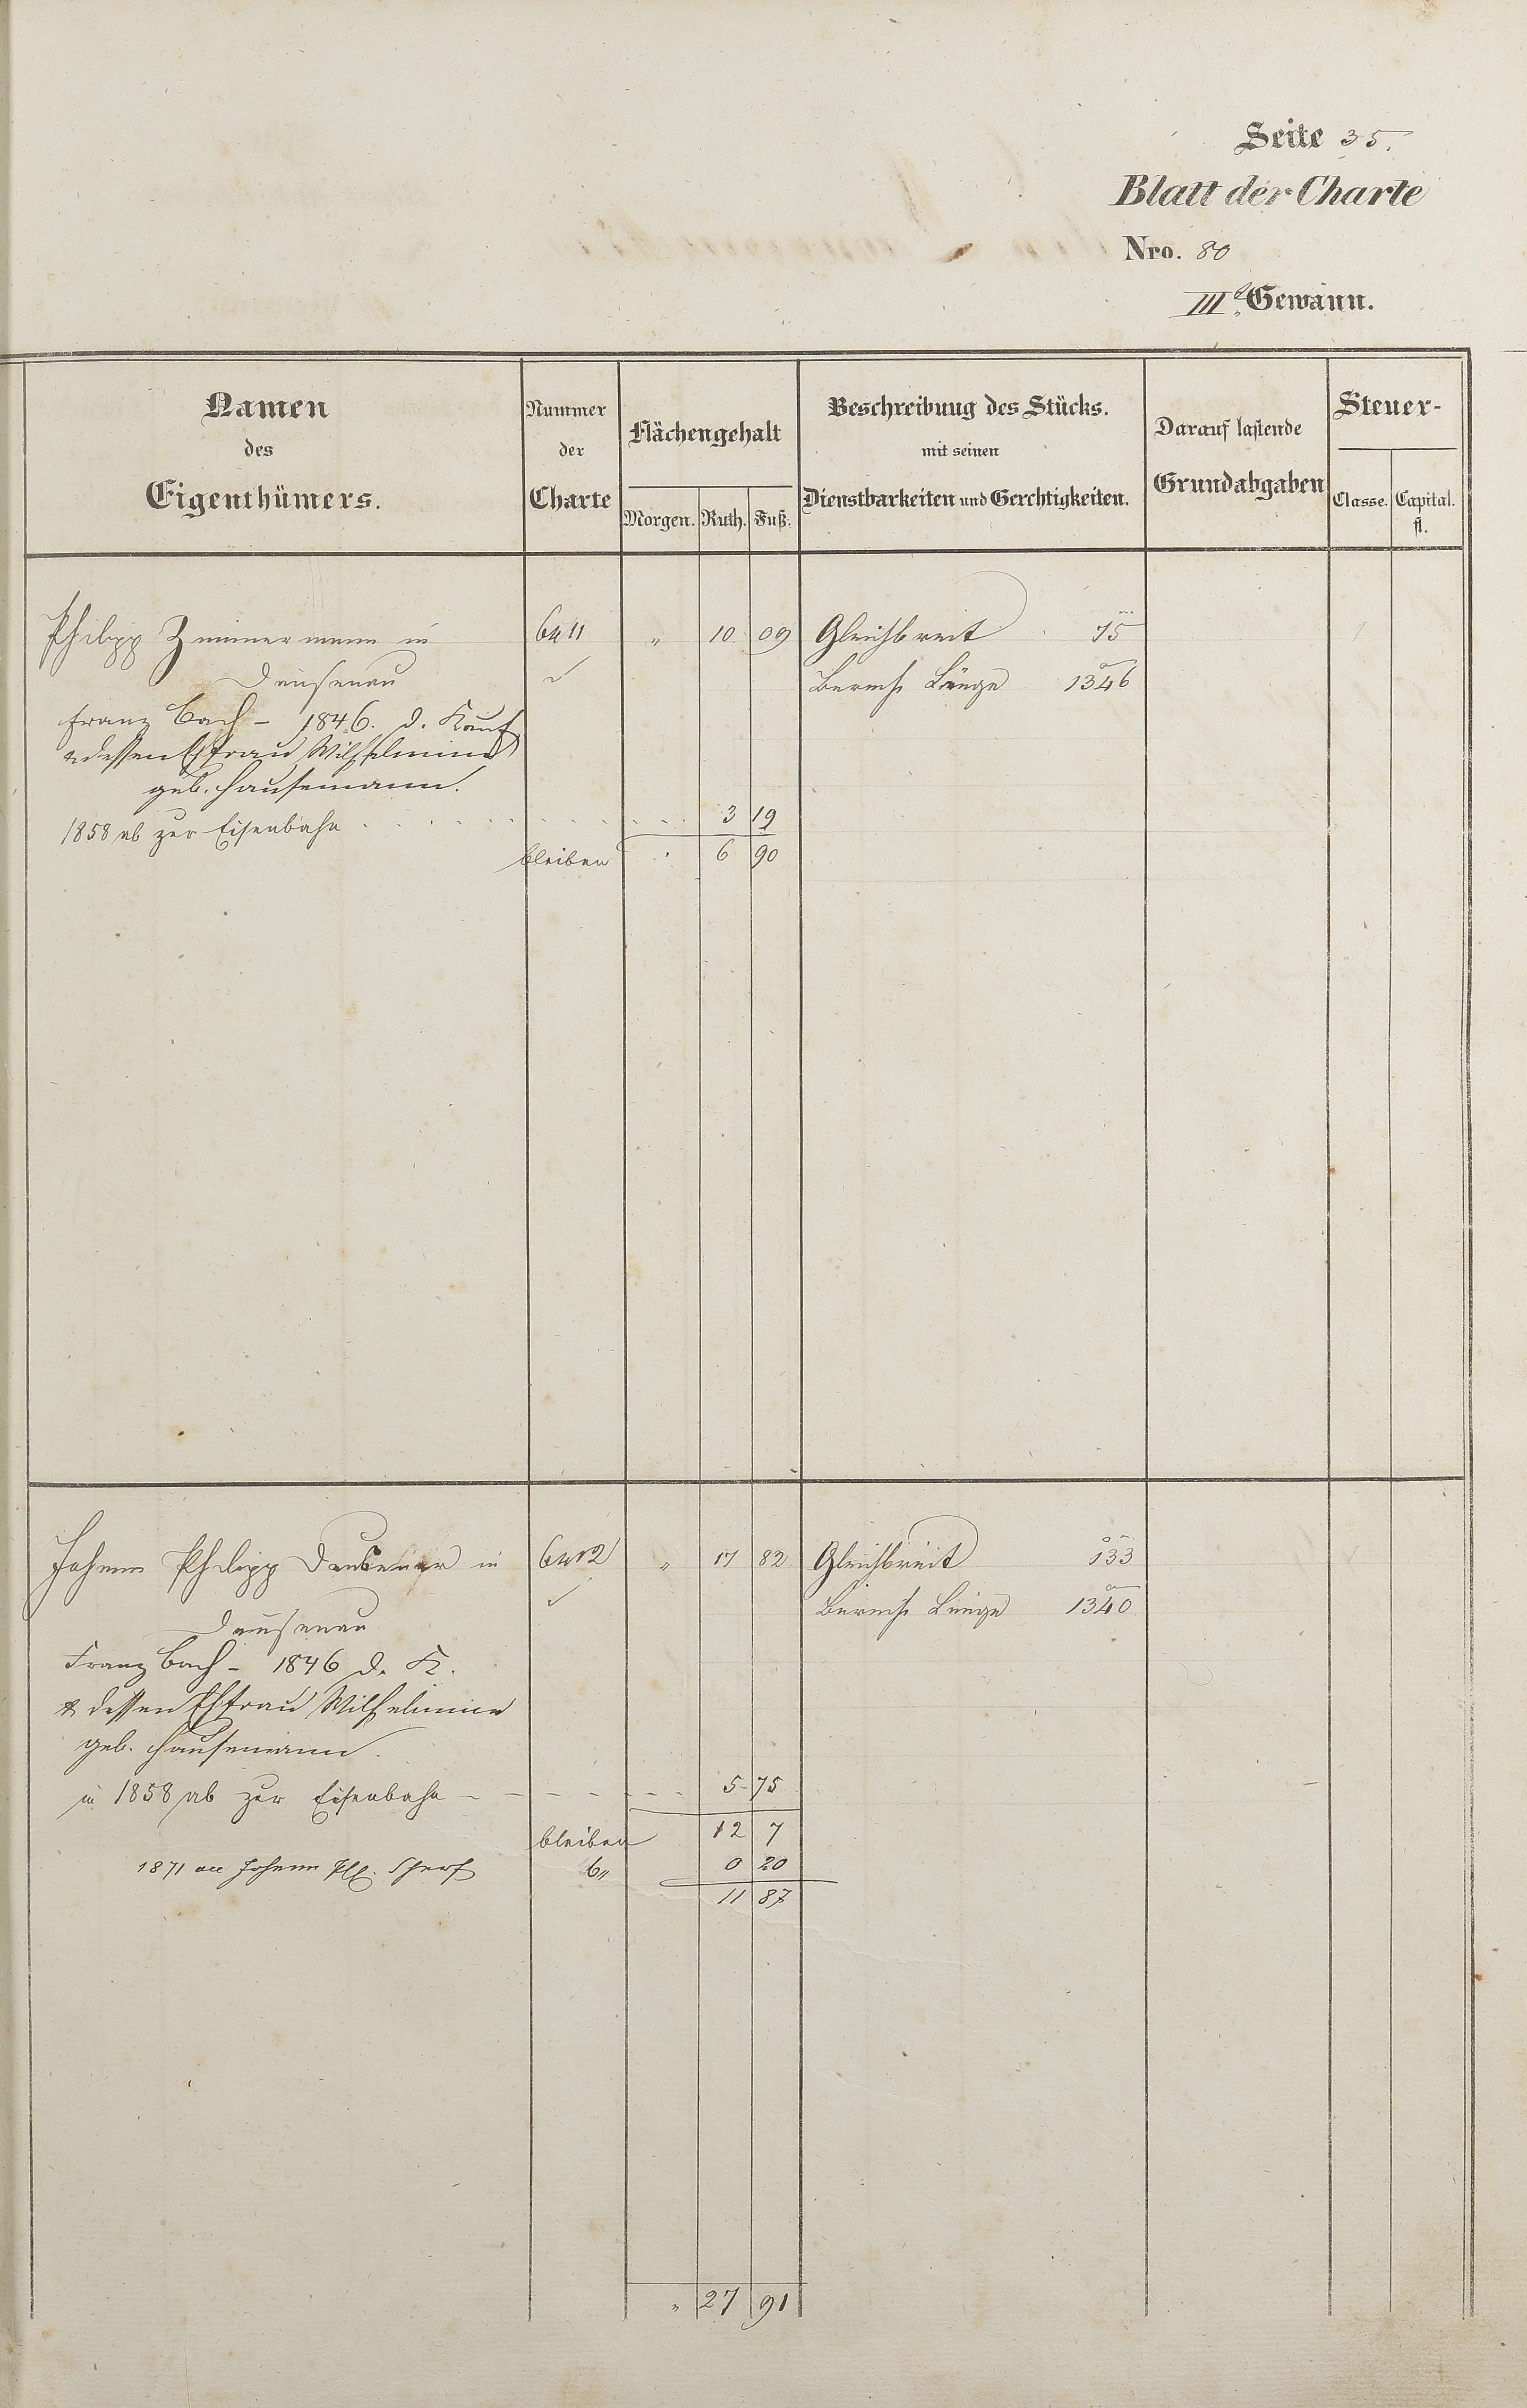 Seite 35.
Blatt der Charte
Nro. 80
III Gewann.
Namen
des
Eigenthümers.
Nummer
der
Charte
Flächengehalt
Morgen. Ruth. Fuß.
Beschreibung des Stücks.
mit seinen
Dienstbarkeiten und Gerechtigkeiten.
Darauf lastende
Grundabgaben
Steuer-
Classe. Capital.
fl.
Philipp Zimmermann in 6411 " 10 09 Gleichbreit 75
Dausenau Berech Länge 1346
Franz Bach - 1846. d. Kauf
& dessen Ehfrau Wilhelmine
geb. Hausemann.
1858 ab zur Eisenbahn 3 19
bleiben 6 90
Johann Philipp in 6412 " 17 82 Gleichbreit 133
Dausenau Berech Länge 1340
Franz Bach - 1846 d. K.
& dessen Ehfrau Wilhelmine
geb. Hausemann.
in 1858 ab zur Eisenbahn 5 75
bleiben 12 7
1871 an Johann 0 20
11 87
" 27 91